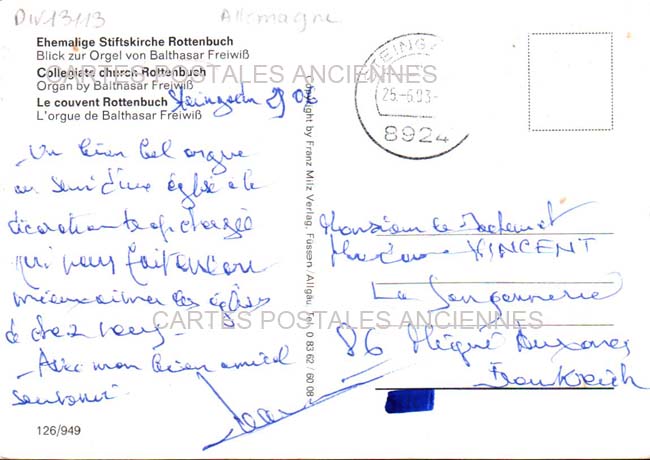 DIV13113
Allemagne
Ehemalige Stiftskirche Rottenbuch
Blick zur Orgel von Balthasar Freiwiß
CARTES POSTALES ANCIENNES
Collegiate church Rottenbuch
Organ by Balthasar Freiwiß
Le couvent Rottenbuch
L'orgue de Balthasar Freiwiß
Steingaden 25 06
Un bien bel orgue
au service d'une église à la
décoration trop chargée
qui nous fait encore
mieux aimer les églises
de chez nous
Avec mon bien amical
souvenir
126/949
Copyright by Franz Milz Verlag, Füssen/Allgäu, Tel. 0 83 62 / 60 08
STEINGA
25.-6.93-
8924
Monsieur le Docteur et
Madame VINCENT
La
CARTES POSTALES ANCIENNES
86 Migné Auxances
Frankreich